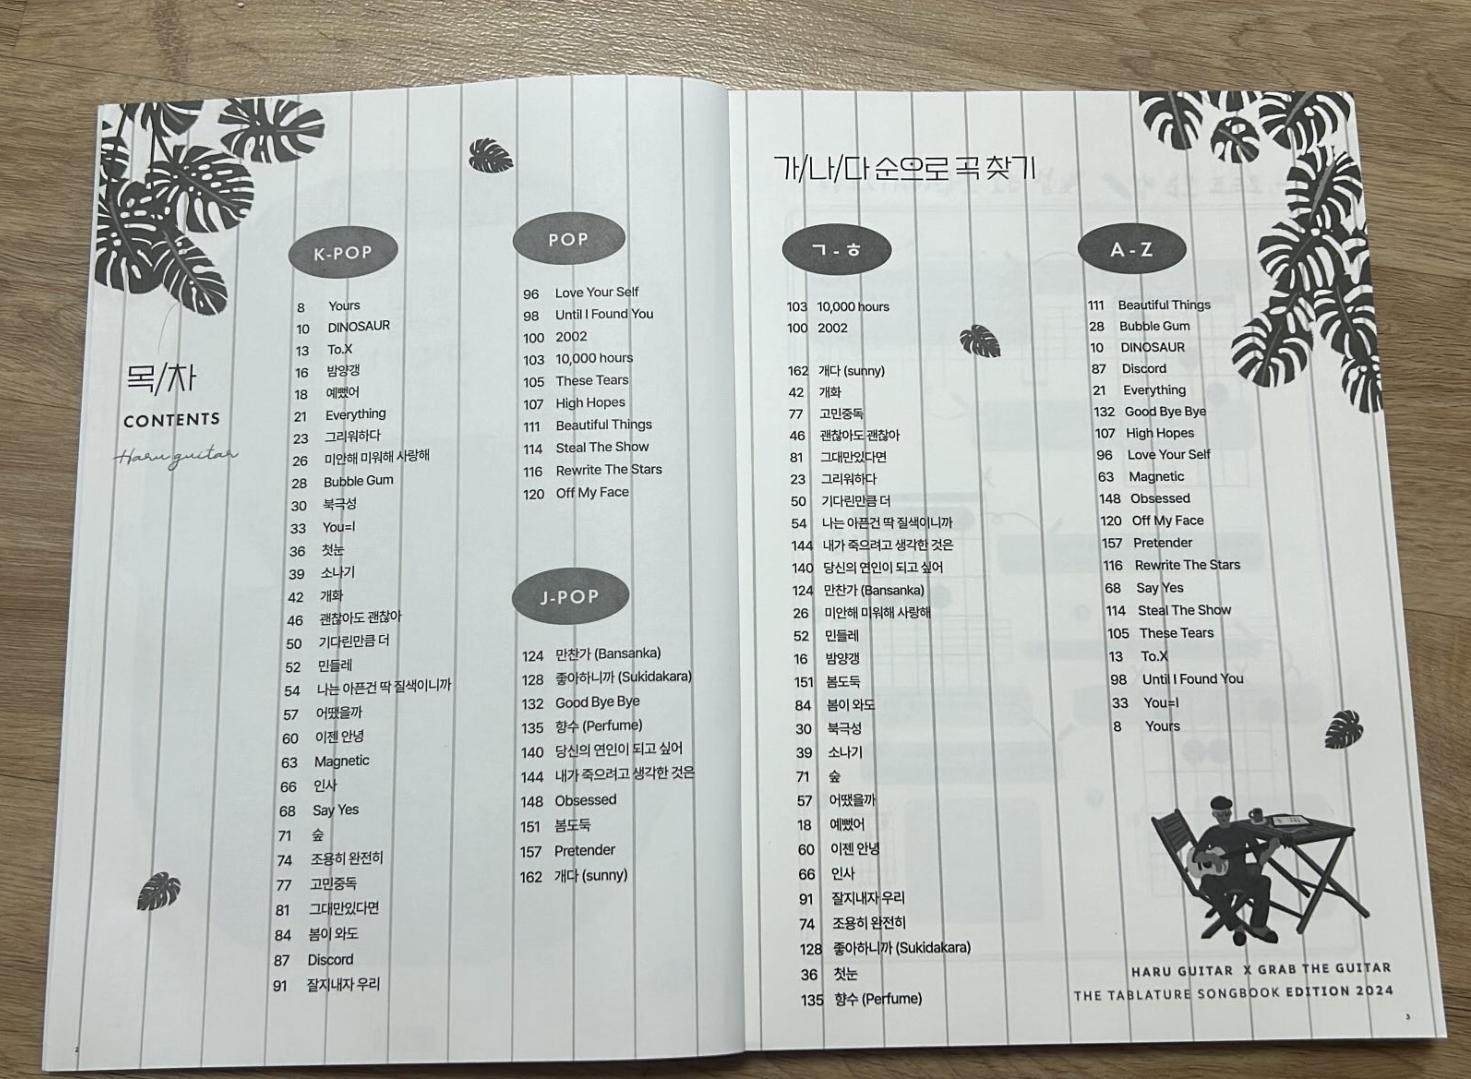 목/차
CONTENTS
Haru guitar
K-POP
8 Yours
10 DINOSAUR
13 To.X
16 밤양갱
18 예뻤어
21 Everything
23 그리워하다
26 미안해 미워해 사랑해
28 Bubble Gum
30 북극성
33 You=I
36 첫눈
39 소나기
42 개화
46 괜찮아도 괜찮아
50 기다린만큼 더
52 민들레
54 나는 아픈건 딱 질색이니까
57 어땠을까
60 이젠 안녕
63 Magnetic
66 인사
68 Say Yes
71 숲
74 조용히 완전히
77 고민중독
81 그대만있다면
84 봄이 와도
87 Discord
91 잘지내자 우리
POP
96 Love Your Self
98 Until I Found You
100 2002
103 10,000 hours
105 These Tears
107 High Hopes
111 Beautiful Things
114 Steal The Show
116 Rewrite The Stars
120 Off My Face
J-POP
124 만찬가 (Bansanka)
128 좋아하니까 (Sukidakara)
132 Good Bye Bye
135 향수 (Perfume)
140 당신의 연인이 되고 싶어
144 내가 죽으려고 생각한 것은
148 Obsessed
151 봄도둑
157 Pretender
162 개다 (sunny)
2
가/나/다 순으로 곡 찾기
ㄱ - ㅎ
103 10,000 hours
100 2002
162 개다 (sunny)
42 개화
77 고민중독
46 괜찮아도 괜찮아
81 그대만있다면
23 그리워하다
50 기다린만큼 더
54 나는 아픈건 딱 질색이니까
144 내가 죽으려고 생각한 것은
140 당신의 연인이 되고 싶어
124 만찬가 (Bansanka)
26 미안해 미워해 사랑해
52 민들레
16 밤양갱
151 봄도둑
84 봄이 와도
30 북극성
39 소나기
71 숲
57 어땠을까
18 예뻤어
60 이젠 안녕
66 인사
91 잘지내자 우리
74 조용히 완전히
128 좋아하니까 (Sukidakara)
36 첫눈
135 향수 (Perfume)
A - Z
111 Beautiful Things
28 Bubble Gum
10 DINOSAUR
87 Discord
21 Everything
132 Good Bye Bye
107 High Hopes
96 Love Your Self
63 Magnetic
148 Obsessed
120 Off My Face
157 Pretender
116 Rewrite The Stars
68 Say Yes
114 Steal The Show
105 These Tears
13 To.X
98 Until I Found You
33 You=I
8 Yours
HARU GUITAR X GRAB THE GUITAR
THE TABLATURE SONGBOOK EDITION 2024
3